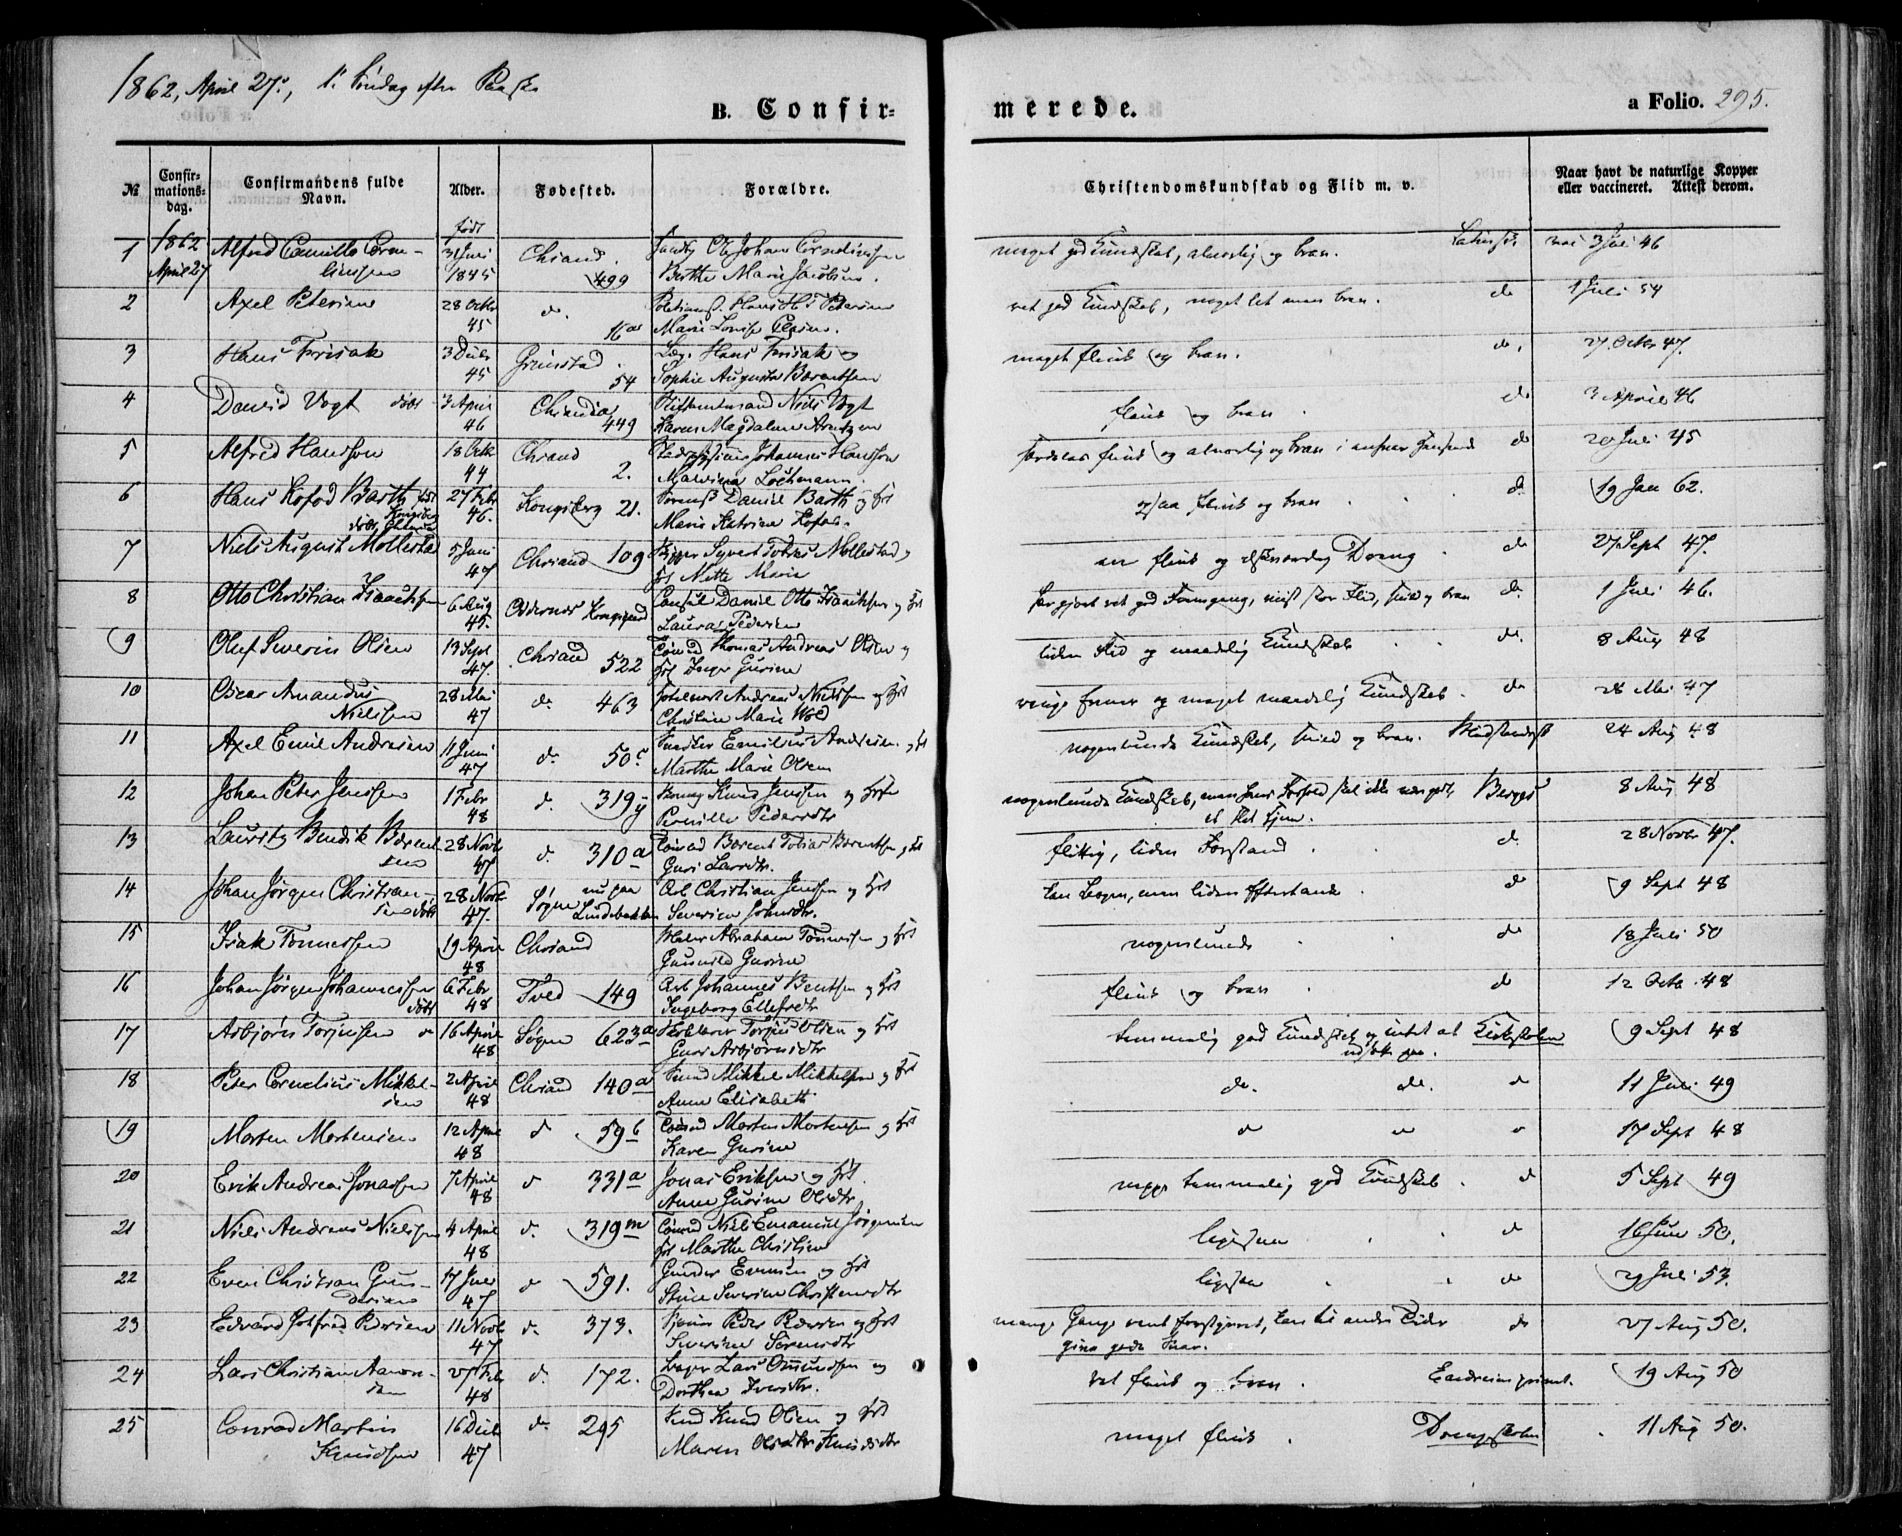 1862, April 27., 1. Søndag efter Paaske
B. Confirmerede.
a Folio. 295.
№ Confirmations-dag. Confirmandens fulde Navn. Alder. Fødested. Forældre. Christendomskundskab og Flid m. v. Naar havt de naturlige Kopper eller vaccineret. Attest derom.
født
1 1862 April 27 Alfred Camillo Corneliussen 3 Juni 1845 Chrsand. 499 Ole Johan Corneliussen Berthe Marie Jacobsen. meget god Kundskab, alvorlig og brav. 3 Juli 46
2 Axel Petersen 28 Octbr 45 d. 16 a Hans Petersen Marie Lovise Olsen. ret god Kundskab, noget let men brav. do 1 Juli 54
3 Hans Frisak 3 Decbr 45 Grimstad. 54 Læge Hans Frisak Sophie Augusta Børentsen meget flink og brav. do. 27. Octbr 47.
4 David Vogt døbt 3 April 46 449 Stiftamtmand Niels Vogt Karen Magdalene Arntzen flink og brav do 3 April 46
5 Alfred Hansson 18 Octbr 44 Chrsand 2. Johannes Hansson Malvina Lochmann. flink og alvorlig og brav i do 20 Juli 45
6 Hans Kofod Barth født Kongsberg døbt 27 Febr 46. Kongsberg 21. Daniel Barth og Hst Marie Katrine Kofod. ogsaa flink og brav do 19 Jan 62.
7 Niels August Mollestad 5 Juni 47 Chrsand 109 Syvert Tobias Mollestad og Hst Nette Marie en flink og elskværdig Dreng do 27 Sept 47.
8 Otto Christian Isaachsen 6 Aug 45. Oddernes Kongsgaard Consul Daniel Otto Isaachsen og Hst Laura Pedersen har gjort ret god Fremgang, vist stor Flid, flink og brav do. 1 Juli 46.
9 Oluf Severin Olsen 13 Sept 47. Chrsand 522 Thomas Andreas Olsen og Hst Inger Gurine liden Flid og maadelig Kundskab do. 8 Aug 48
10 Oscar Amandus Nielsen 28 Mai 47 do 463 Andreas Nielsen og Hst Christine Marie og meget maadelig Kundskab do 28 Mai 47
11 Axel Emil Andresen 11 Juni 47 d. 50 c Snedker Emilius Andresen og Hst Marthe Marie Olsen nogenlunde Kundskab, flink og brav. 24 Aug 48
12 Johan Peter Jensen 1 Febr 48 d. 319 y Knud Jensen og Hst Pernille Pedersdtr nogenlunde Kundskab, men hans Forhold skal ikke være godt, 8 Aug 48
13 Lauritz Bendik Børentsen 28 Novbr 47 d. 310 a Børent Tobias Børentsen og Hst Guri Larsdtr. flittig, liden Forstand do 28 Novbr 47.
14 Johan Jørgen Christiansen døbt 28 Novbr 47. Søgne nu paa Lindebækken Arb Christian Jensen og Hst Severine Johnsdtr. kan Bogen, men liden Eftertanke do 9 Sept 48
15 Isak Tønnessen 19 April 48 Chrsand Abraham Tønnessen og Hst Gunnild Gurine nogenlunde do 18 Juli 50
16 Johan Jørgen Johannessen døbt 6 Febr 48 Tved 149 Arb Johannes Bentsen og Hst Ingeborg Ellefsdtr flink og brav do 12 Octbr 48
17 Asbjørn Torjussen 16 April 48 Søgne 623 a Torjus Olsen og Hst Guri Asbjørnsdtr temmelig god Kundskab og intet at udsætte paa. 9 Sept 48
18 Peter Cornelius Mikkelsen 2 April 48 Chrsand 140 a Mikkel Mikkelsen og Hst Anne Elisabeth do. do. do 11 Juli 49
19 Morten Mortensen 12 April 48 d 59 b Morten Mortensen og Hst Karen Gurine 17 Sept 48
20 Erik Andreas Jonassen 7 April 48 d 331 a Jonas Eriksen og Hst. Anne Gurine Olsdtr. temmelig god Kundskab. do 5 Sept 49
21 Niels Andreas Nielsen 4 April 48 d. 319 m Niels Emanuel Jørgensen Hst Marthe Christine ligesaa do 16 Juni 50.
22 Even Christian Gundersen 17 Juli 47 d 591. Gunder Evensen og Hst Stine Severine Christensdtr ligesaa do 29 Juli 53.
23 Edvard Gotfred Pedersen 11 Novbr 47 d. 373. Peder Pedersen og Hst Severine Sørensdtr mange Gange været forstyrret, kan til andre Tider give gode Svar. do 27 Aug 50.
24 Lars Christian Aanonsen 27 Feb 48 d. 172. Lars Omundsen og Dorthea Iversdtr. ret flink og brav. 19 Aug 50
25 Conrad Martin Knudsen 16 Decbr 47 d. 295 Knud Olsen og Hst Maren Olsdtr Knudsdtr meget flink. 11 Aug 50.